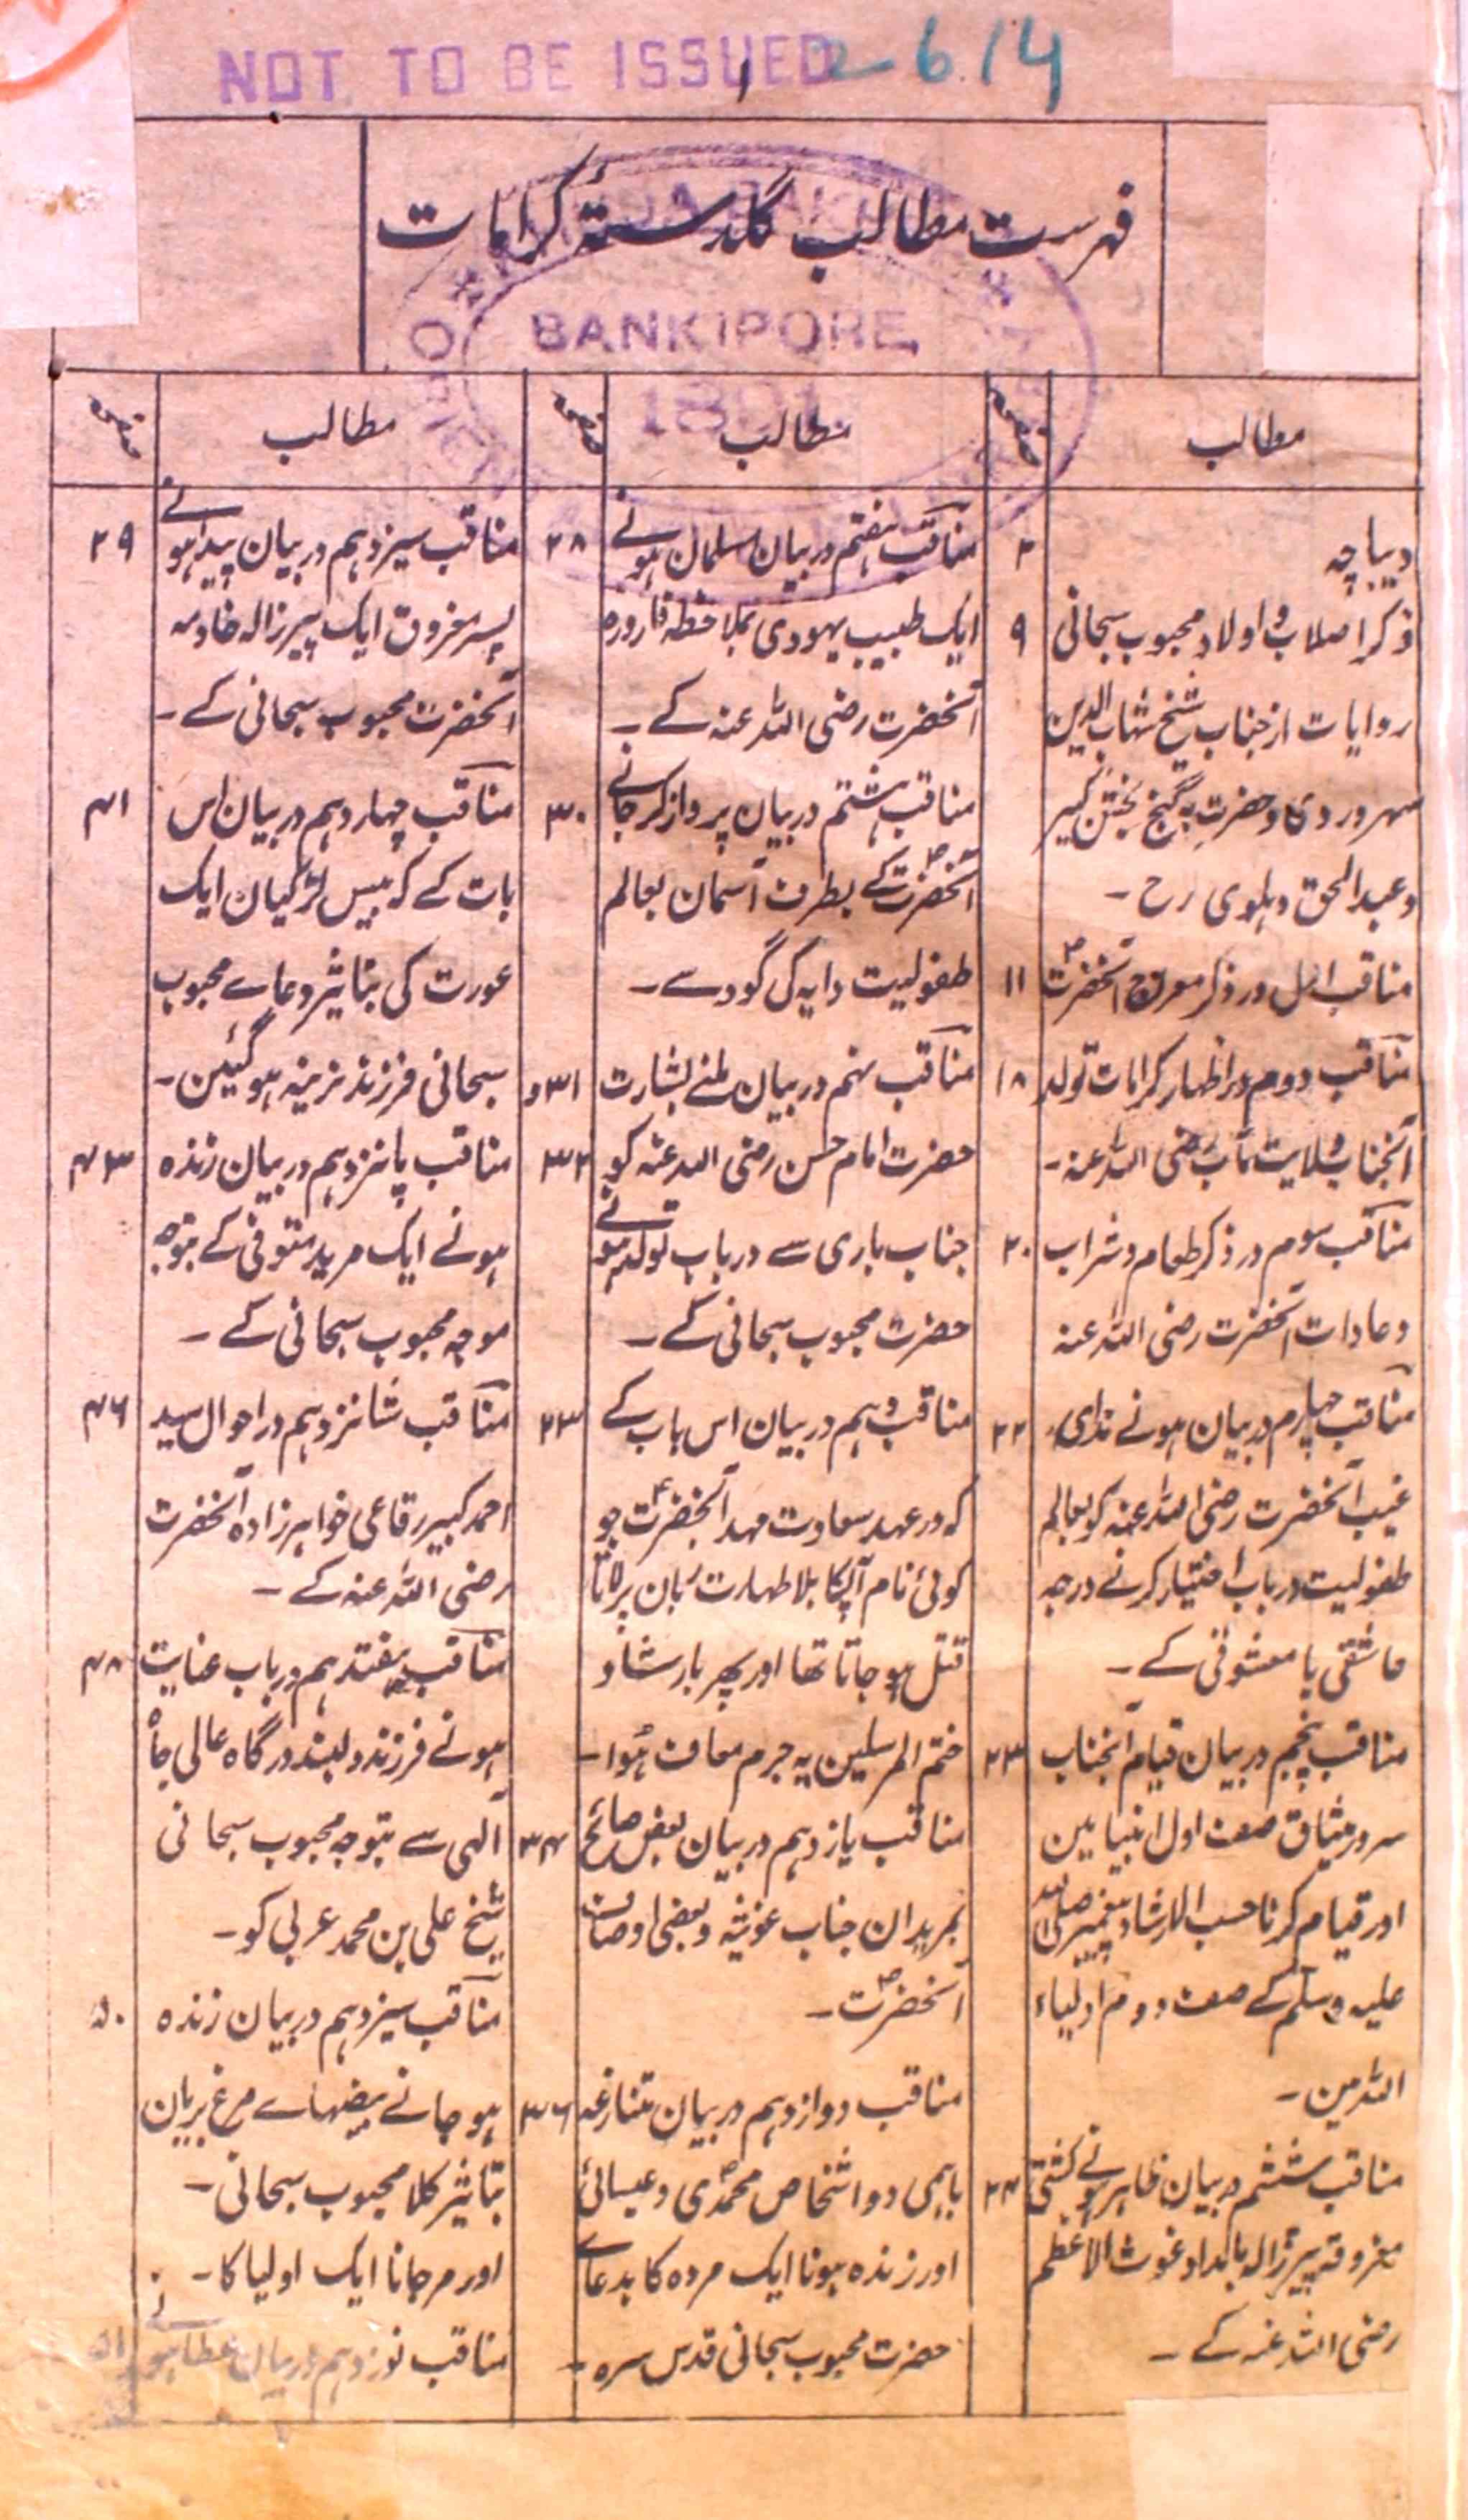 NOT TO BE ISSUED
2614
فہرست مطالب گلدستۂ کرامات
BANKIPORE
1891
مطالب
صفحہ
دیباچہ ۲
ذکر اصلاب و اولاد محبوب سبحانی ۹
روایات از جناب شیخ شہاب الدین
سہروردی و حضرت گنج بخش
و عبدالحق دہلوی رح ۔
مناقب اول در ذکر معراج آنحضرت ۱۱
مناقب دوم در اظہار کرامات تولد ۱۸
آنجناب ولایت مآب رضی اللہ عنہ ۔
مناقب سوم در ذکر طعام و شراب ۲۰
و عادات آنحضرت رضی اللہ عنہ
مناقب چہارم در بیان ہونے ندای ۲۲
غیب آنحضرت رضی اللہ عنہ کو بعالم
طفولیت در باب اختیار کرنے درجہ
عاشقی یا معشوقی کے ۔
مناقب پنجم در بیان قیام آنجناب ۲۳
سرور میثاق صف اول انبیا میں
اور قیام کرنا حسب الارشاد پیغمبر صلی اللہ
علیہ وسلم کے صف دوم اولیاء
اللہ میں ۔
مناقب ششم در بیان ظاہر ہونے کشتی ۲۴
مغروقہ پیرزالہ بامداد غوث الاعظم
رضی اللہ عنہ کے ۔
مطالب
صفحہ
مناقب ہفتم در بیان مسلمان ہونے ۲۸
ایک طبیب یہودی بملاحظہ قارورہ
آنحضرت رضی اللہ عنہ کے ۔
مناقب ہشتم در بیان پرواز کر جانے ۳۰
آنحضرت کے بطرف آسمان بعالم
طفولیت دایہ کی گود سے ۔
مناقب نہم در بیان ملنے بشارت ۳۱ و
حضرت امام حسن رضی اللہ عنہ کو ۳۲
جناب باری سے در باب تولد ہونے
حضرت محبوب سبحانی کے ۔
مناقب دہم در بیان اس باب کے ۳۳
کہ در عہد سعادت مہد آنحضرت جو
کوئی نام آپکا بلا طہارت زبان پر لاتا
قتل ہو جاتا تھا اور پھر بارشاد
ختم المرسلین یہ جرم معاف ہُوا ۔
مناقب یازدہم در بیان بعض صائح ۳۴
بمریدان جناب غوثیہ و بعضی اوصاف
آنحضرت ۔
مناقب دوازدہم در بیان تنازعہ ۳۶
باہمی دو اشخاص محمدی و عیسائی
اور زندہ ہونا ایک مردہ کا بدعاے
حضرت محبوب سبحانی قدس سرہ ۔
مطالب
صفحہ
مناقب سیزدہم در بیان پیدا ہونے ۳۹
پسر مغروق ایک پیرزالہ خادمہ
آنحضرت محبوب سبحانی کے ۔
مناقب چہاردہم در بیان اس ۴۱
بات کے کہ بیس لڑکیان ایک
عورت کی بتاثیر دعاے محبوب
سبحانی فرزند نرینہ ہو گئین ۔
مناقب پانزدہم در بیان زندہ ۴۳
ہونے ایک مرید متوفی کے بتوجہ
موجہ محبوب سبحانی کے ۔
مناقب شانزدہم در احوال سید ۴۶
احمد کبیر رفاعی خواہرزادہ آنحضرت
رضی اللہ عنہ کے ۔
مناقب ہفتدہم در باب عنایت ۴۸
ہونے فرزند دلبند درگاہ عالی جاہ
آلہی سے بتوجہ محبوب سبحانی
شیخ علی بن محمد عربی کو ۔
مناقب سیزدہم در بیان زندہ ۵۰
ہو جانے بیضہاے مرغ بریان
بتاثیر کلام محبوب سبحانی ۔
اور مر جانا ایک اولیا کا ۔
مناقب نوزدہم در بیان عطا ہونے ۵۱